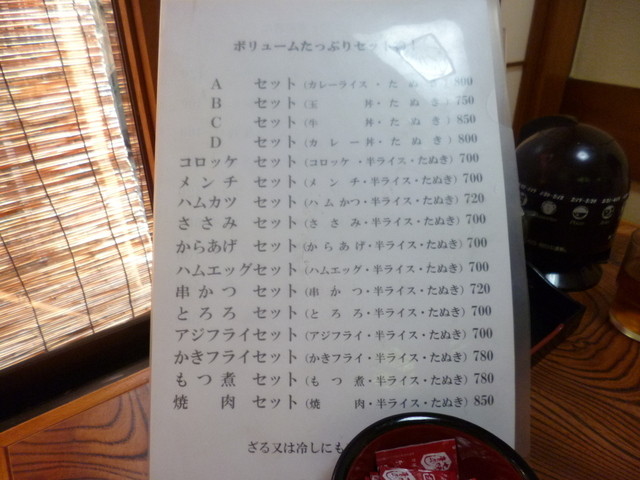 ボリュームたっぷりセット
A セット(カレーライス・たぬき) 800
B セット(玉丼・たぬき) 750
C セット(牛丼・たぬき) 850
D セット(カレー丼・たぬき) 800
コロッケ セット(コロッケ・半ライス・たぬき) 700
メンチ セット(メンチ・半ライス・たぬき) 700
ハムカツ セット(ハムかつ・半ライス・たぬき) 720
ささみ セット(ささみ・半ライス・たぬき) 700
からあげ セット(からあげ・半ライス・たぬき) 700
ハムエッグセット(ハムエッグ・半ライス・たぬき) 700
串かつ セット(串かつ・半ライス・たぬき) 720
とろろ セット(とろろ・半ライス・たぬき) 700
アジフライセット(アジフライ・半ライス・たぬき) 700
かきフライセット(かきフライ・半ライス・たぬき) 780
もつ煮 セット(もつ煮・半ライス・たぬき) 780
焼肉 セット(焼肉・半ライス・たぬき) 850
ざる又は冷しにも